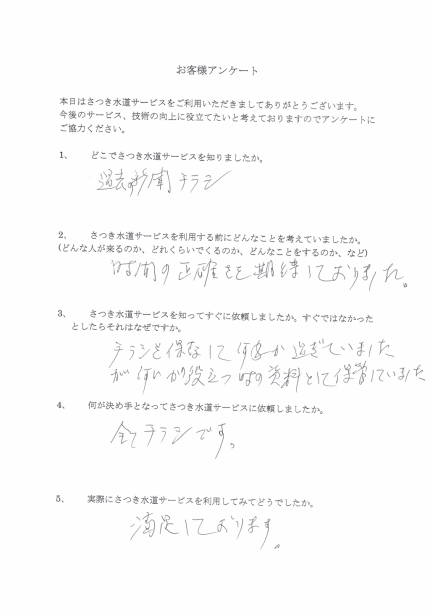 お客様アンケート
本日はさつき水道サービスをご利用いただきましてありがとうございます。
今後のサービス、技術の向上に役立てたいと考えておりますのでアンケートに
ご協力ください。
1、 どこでさつき水道サービスを知りましたか。
過去の新聞チラシ
2、 さつき水道サービスを利用する前にどんなことを考えていましたか。
(どんな人が来るのか、どれくらいでくるのか、どんなことをするのか、など)
時間の正確さを期待しておりました。
3、 さつき水道サービスを知ってすぐに依頼しましたか。すぐではなかった
としたらそれはなぜですか。
チラシを保存して何年か過ぎていました
が何いかの役立つ時の資料として保管していました
4、 何が決め手となってさつき水道サービスに依頼しましたか。
全てチラシです。
5、 実際にさつき水道サービスを利用してみてどうでしたか。
満足しております。